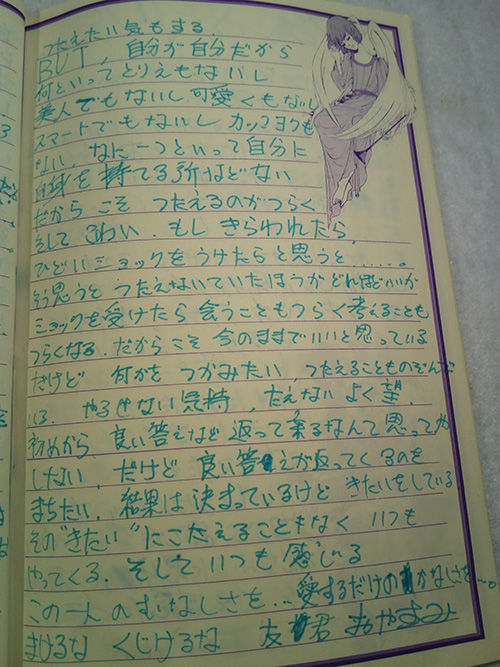 つたえたい気もする。
BUT、自分が自分だから
何といってとりえもないし
美人でもないし可愛くもないし
スマートでもないし カッコヨクも
ない、なに一つといって自分に
自身を持てる所はどない
だからこそ つたえるのがつらく、
そして こわい、もし きらわれたら、
ひどいショックをうけたらと思うと……。
そう思うと つたえないでいたほうが どれほどいいか
ショックを受けたら会うこともつらく考えることも
つらくなる。だからこそ 今のままでいいと思っている
だけど 何かを つかみたい、つたえることものぞんで
いる。やるせない気持、たえない よく望、
初めから 良い答えなど 返って来るなんて思ってや
しない、だけど 良い答えが返ってくるのを
まちたい。結果は決まっているけど きたいをしている
その"きたい"にこたえることもなく いつも
やってくる、そして いつも 感じる
この一人のむなしさを… 愛するだけのかなしさを…。
まけるな くじけるな 友 君